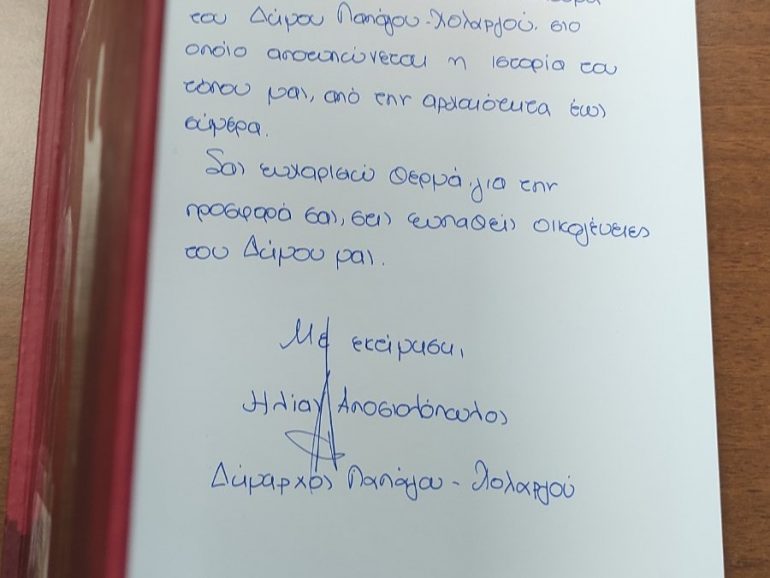 του Δήμου Παπάγου-Χολαργού, στο
οποίο αποτυπώνεται η ιστορία του
τόπου μας, από την αρχαιότητα έως
σήμερα.
Σας ευχαριστώ θερμά, για την
προσφορά σας, στις ευπαθείς οικογένειες
του Δήμου μας.
Με εκτίμηση,
Ηλίας Αποστολόπουλος
Δήμαρχος Παπάγου - Χολαργού